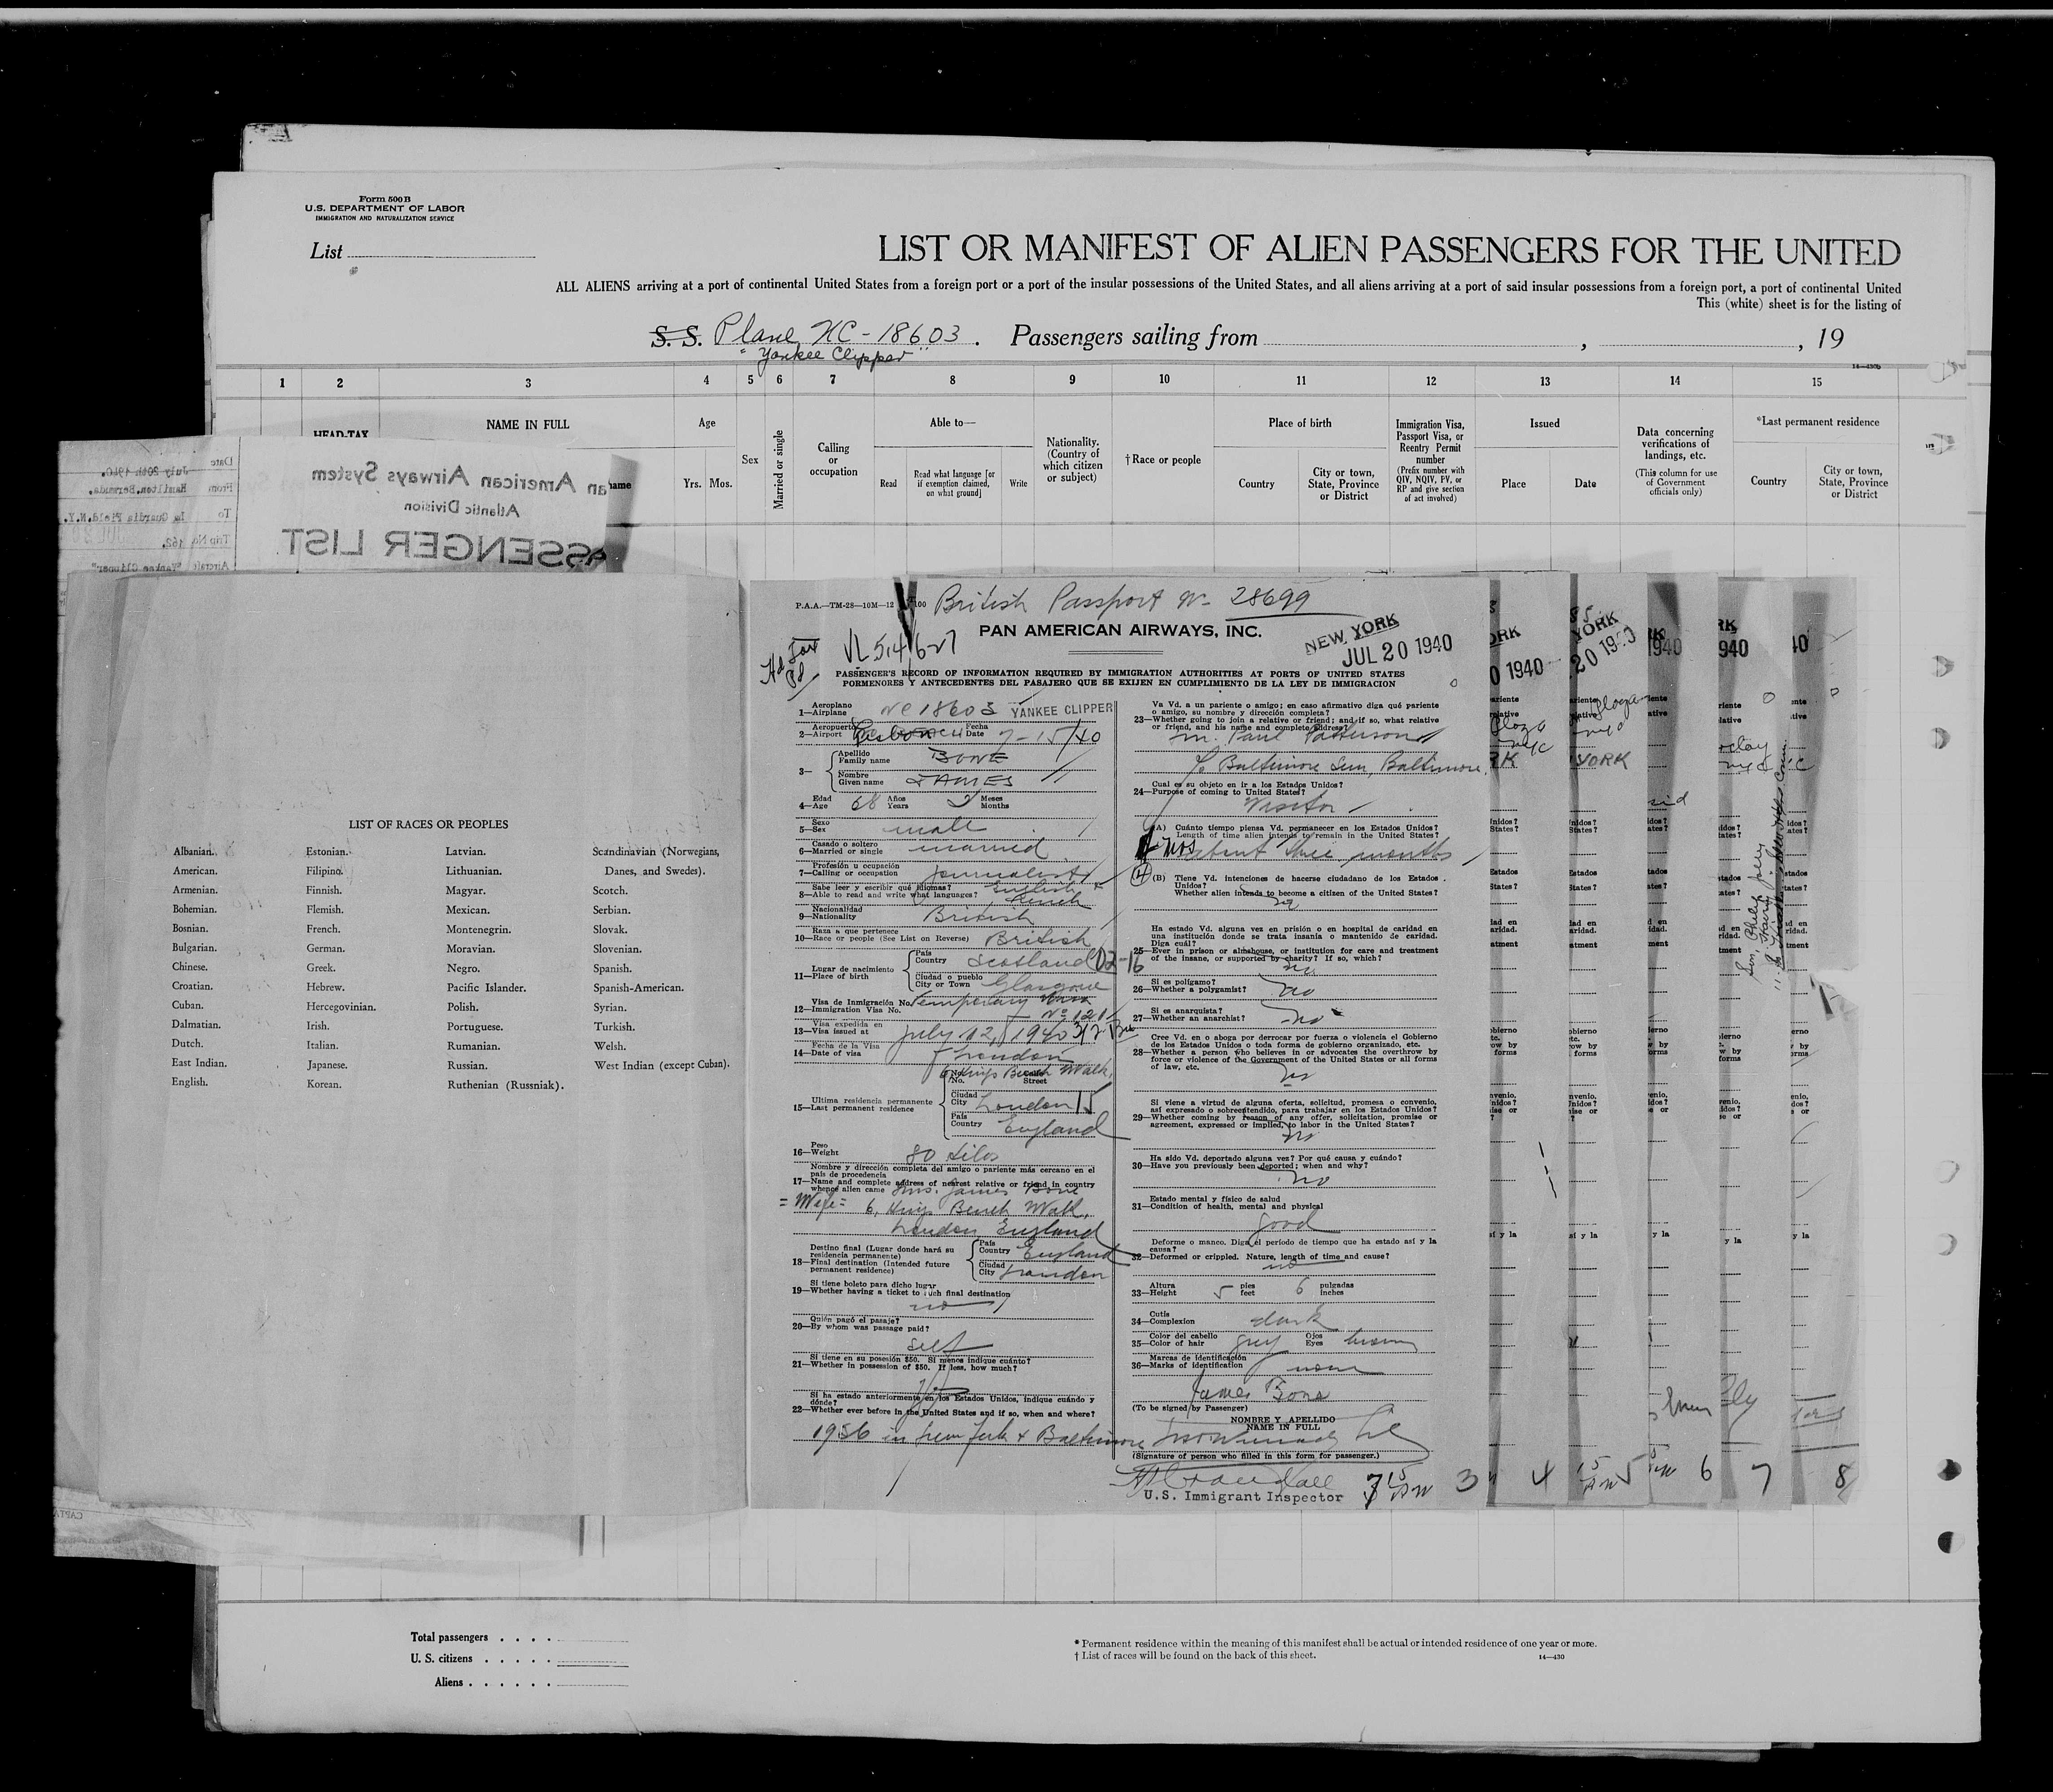 Form 500 B
U.S. DEPARTMENT OF LABOR
IMMIGRATION AND NATURALIZATION SERVICE
List
LIST OR MANIFEST OF ALIEN PASSENGERS FOR THE UNITED
ALL ALIENS arriving at a port of continental United States from a foreign port or a port of the insular possessions of the United States, and all aliens arriving at a port of said insular possessions from a foreign port, a port of continental United
This (white) sheet is for the listing of
S. S. Plane NC-18603. Passengers sailing from , , 19
"Yankee Clipper"
14—430b
1 2 3 4 5 6 7 8 9 10 11 12 13 14 15
HEAD-TAX
NAME IN FULL
name
Age
Yrs. Mos.
Sex
Married or single
Calling
or
occupation
Able to—
Read
Read what language [or
if exemption claimed,
on what ground]
Write
Nationality.
(Country of
which citizen
or subject)
†Race or people
Place of birth
Country
City or town,
State, Province
or District
Immigration Visa,
Passport Visa, or
Reentry Permit
number
(Prefix number with
QIV, NQIV, PV, or
RP and give section
of act involved)
Issued
Place
Date
Data concerning
verifications of
landings, etc.
(This column for use
of Government
officials only)
*Last permanent residence
Country
City or town,
State, Province
or District
an American Airways System
Atlantic Division
ASSENGER LIST
Date July 20th 1940.
From Hamilton, Bermuda.
To La Guardia Field, N.Y.
Trip No. 162.
Aircraft "Yankee Clipper"
LIST OF RACES OR PEOPLES
Albanian.
American.
Armenian.
Bohemian.
Bosnian.
Bulgarian.
Chinese.
Croatian.
Cuban.
Dalmatian.
Dutch.
East Indian.
English.
Estonian.
Filipino.
Finnish.
Flemish.
French.
German.
Greek.
Hebrew.
Hercegovinian.
Irish.
Italian.
Japanese.
Korean.
Latvian.
Lithuanian.
Magyar.
Mexican.
Montenegrin.
Moravian.
Negro.
Pacific Islander.
Polish.
Portuguese.
Rumanian.
Russian.
Ruthenian (Russniak).
Scandinavian (Norwegians,
Danes, and Swedes).
Scotch.
Serbian.
Slovak.
Slovenian.
Spanish.
Spanish-American.
Syrian.
Turkish.
Welsh.
West Indian (except Cuban).
P.A.A.—TM-28—10M—12
British Passport No 28699
PAN AMERICAN AIRWAYS, INC.
NEW YORK
JUL 20 1940
Hd Tax
Pd
PASSENGER'S RECORD OF INFORMATION REQUIRED BY IMMIGRATION AUTHORITIES AT PORTS OF UNITED STATES
PORMENORES Y ANTECEDENTES DEL PASAJERO QUE SE EXIJEN EN CUMPLIMIENTO DE LA LEY DE IMMIGRACION
Aeroplano
1—Airplane NC 18603 YANKEE CLIPPER
Aeropuerto Fecha
2—Airport Lisbon Date 7-15/40
Apellido
Family name BONE
3—
Nombre
Given name JAMES
Edad Años Meses
4—Age 68 Years 2 Months
Sexo
5—Sex male
Casado o soltero
6—Married or single married
Profesión u ocupación
7—Calling or occupation journalist
Sabe leer y escribir qué idiomas? English
8—Able to read and write what languages? French
Nacionalidad
9—Nationality British
Raza a que pertenece
10—Race or people (See List on Reverse) British
País
Country Scotland
Lugar de nacimiento
11—Place of birth
Ciudad o pueblo
City or Town Glasgow
Visa de Inmigración No. Temporary Visa
12—Immigration Visa No. No 121
Visa expedida en
13—Visa issued at July 12, 1940
Fecha de la Visa
14—Date of visa London
No. 6 Kings Bench Walk,
No. Street
Ultima residencia permanente
15—Last permanent residence
Ciudad
City London
País
Country England
Peso
16—Weight 80 kilos
Nombre y dirección completa del amigo o pariente más cercano en el
país de procedencia
17—Name and complete address of nearest relative or friend in country
whence alien came Mrs. James Bone
=Wife= 6, Kings Bench Walk,
London England
Destino final (Lugar donde hará su
residencia permanente)
18—Final destination (Intended future
permanent residence)
País
Country England
Ciudad
City London
Si tiene boleto para dicho lugar
19—Whether having a ticket to such final destination
no
Quién pagó el pasaje?
20—By whom was passage paid?
self
Si tiene en su posesión $50. Si menos indique cuánto?
21—Whether in possession of $50. If less, how much?
Si ha estado anteriormente en los Estados Unidos, indique cuándo y
dónde?
22—Whether ever before in the United States and if so, when and where?
1936 in New York & Baltimore
Va Vd. a un pariente o amigo; en caso afirmativo diga qué pariente
o amigo, su nombre y dirección completa?
23—Whether going to join a relative or friend; and if so, what relative
or friend, and his name and complete address?
Mr. Paul Patterson
c/o Baltimore Sun, Baltimore
Cual es su objeto en ir a los Estados Unidos?
24—Purpose of coming to United States?
Visitor
(A) Cuánto tiempo piensa Vd. permanecer en los Estados Unidos?
Length of time alien intends to remain in the United States?
about three months
(B) Tiene Vd. intenciones de hacerse ciudadano de los Estados
Unidos?
Whether alien intends to become a citizen of the United States?
no
Ha estado Vd. alguna vez en prisión o en hospital de caridad en
una institución donde se trata insania o mantenido de caridad.
Diga cuál?
25—Ever in prison or almshouse, or institution for care and treatment
of the insane, or supported by charity? If so, which?
no
Si es polígamo?
26—Whether a polygamist? no
Si es anarquista?
27—Whether an anarchist? no
Cree Vd. en o aboga por derrocar por fuerza o violencia el Gobierno
de los Estados Unidos o toda forma de gobierno organizado, etc.
28—Whether a person who believes in or advocates the overthrow by
force or violence of the Government of the United States or all forms
of law, etc.
no
Si viene a virtud de alguna oferta, solicitud, promesa o convenio,
así expresado o sobreentendido, para trabajar en los Estados Unidos?
29—Whether coming by reason of any offer, solicitation, promise or
agreement, expressed or implied, to labor in the United States?
no
Ha sido Vd. deportado alguna vez? Por qué causa y cuándo?
30—Have you previously been deported; when and why?
no
Estado mental y físico de salud
31—Condition of health, mental and physical
good
Deforme o manco. Diga el período de tiempo que ha estado así y la
causa?
32—Deformed or crippled. Nature, length of time and cause?
no
Altura pies pulgadas
33—Height 5 feet 6 inches
Cutis
34—Complexion dark
Color del cabello Ojos
35—Color of hair grey Eyes brown
Marcas de identificación
36—Marks of identification none
James Bone
(To be signed by Passenger)
NOMBRE Y APELLIDO
NAME IN FULL
(Signature of person who filled in this form for passenger.)
U.S. Immigrant Inspector
3 4 5 6 7 8
Total passengers . . . .
U. S. citizens . . . . .
Aliens . . . . . .
* Permanent residence within the meaning of this manifest shall be actual or intended residence of one year or more.
† List of races will be found on the back of this sheet.
14—430